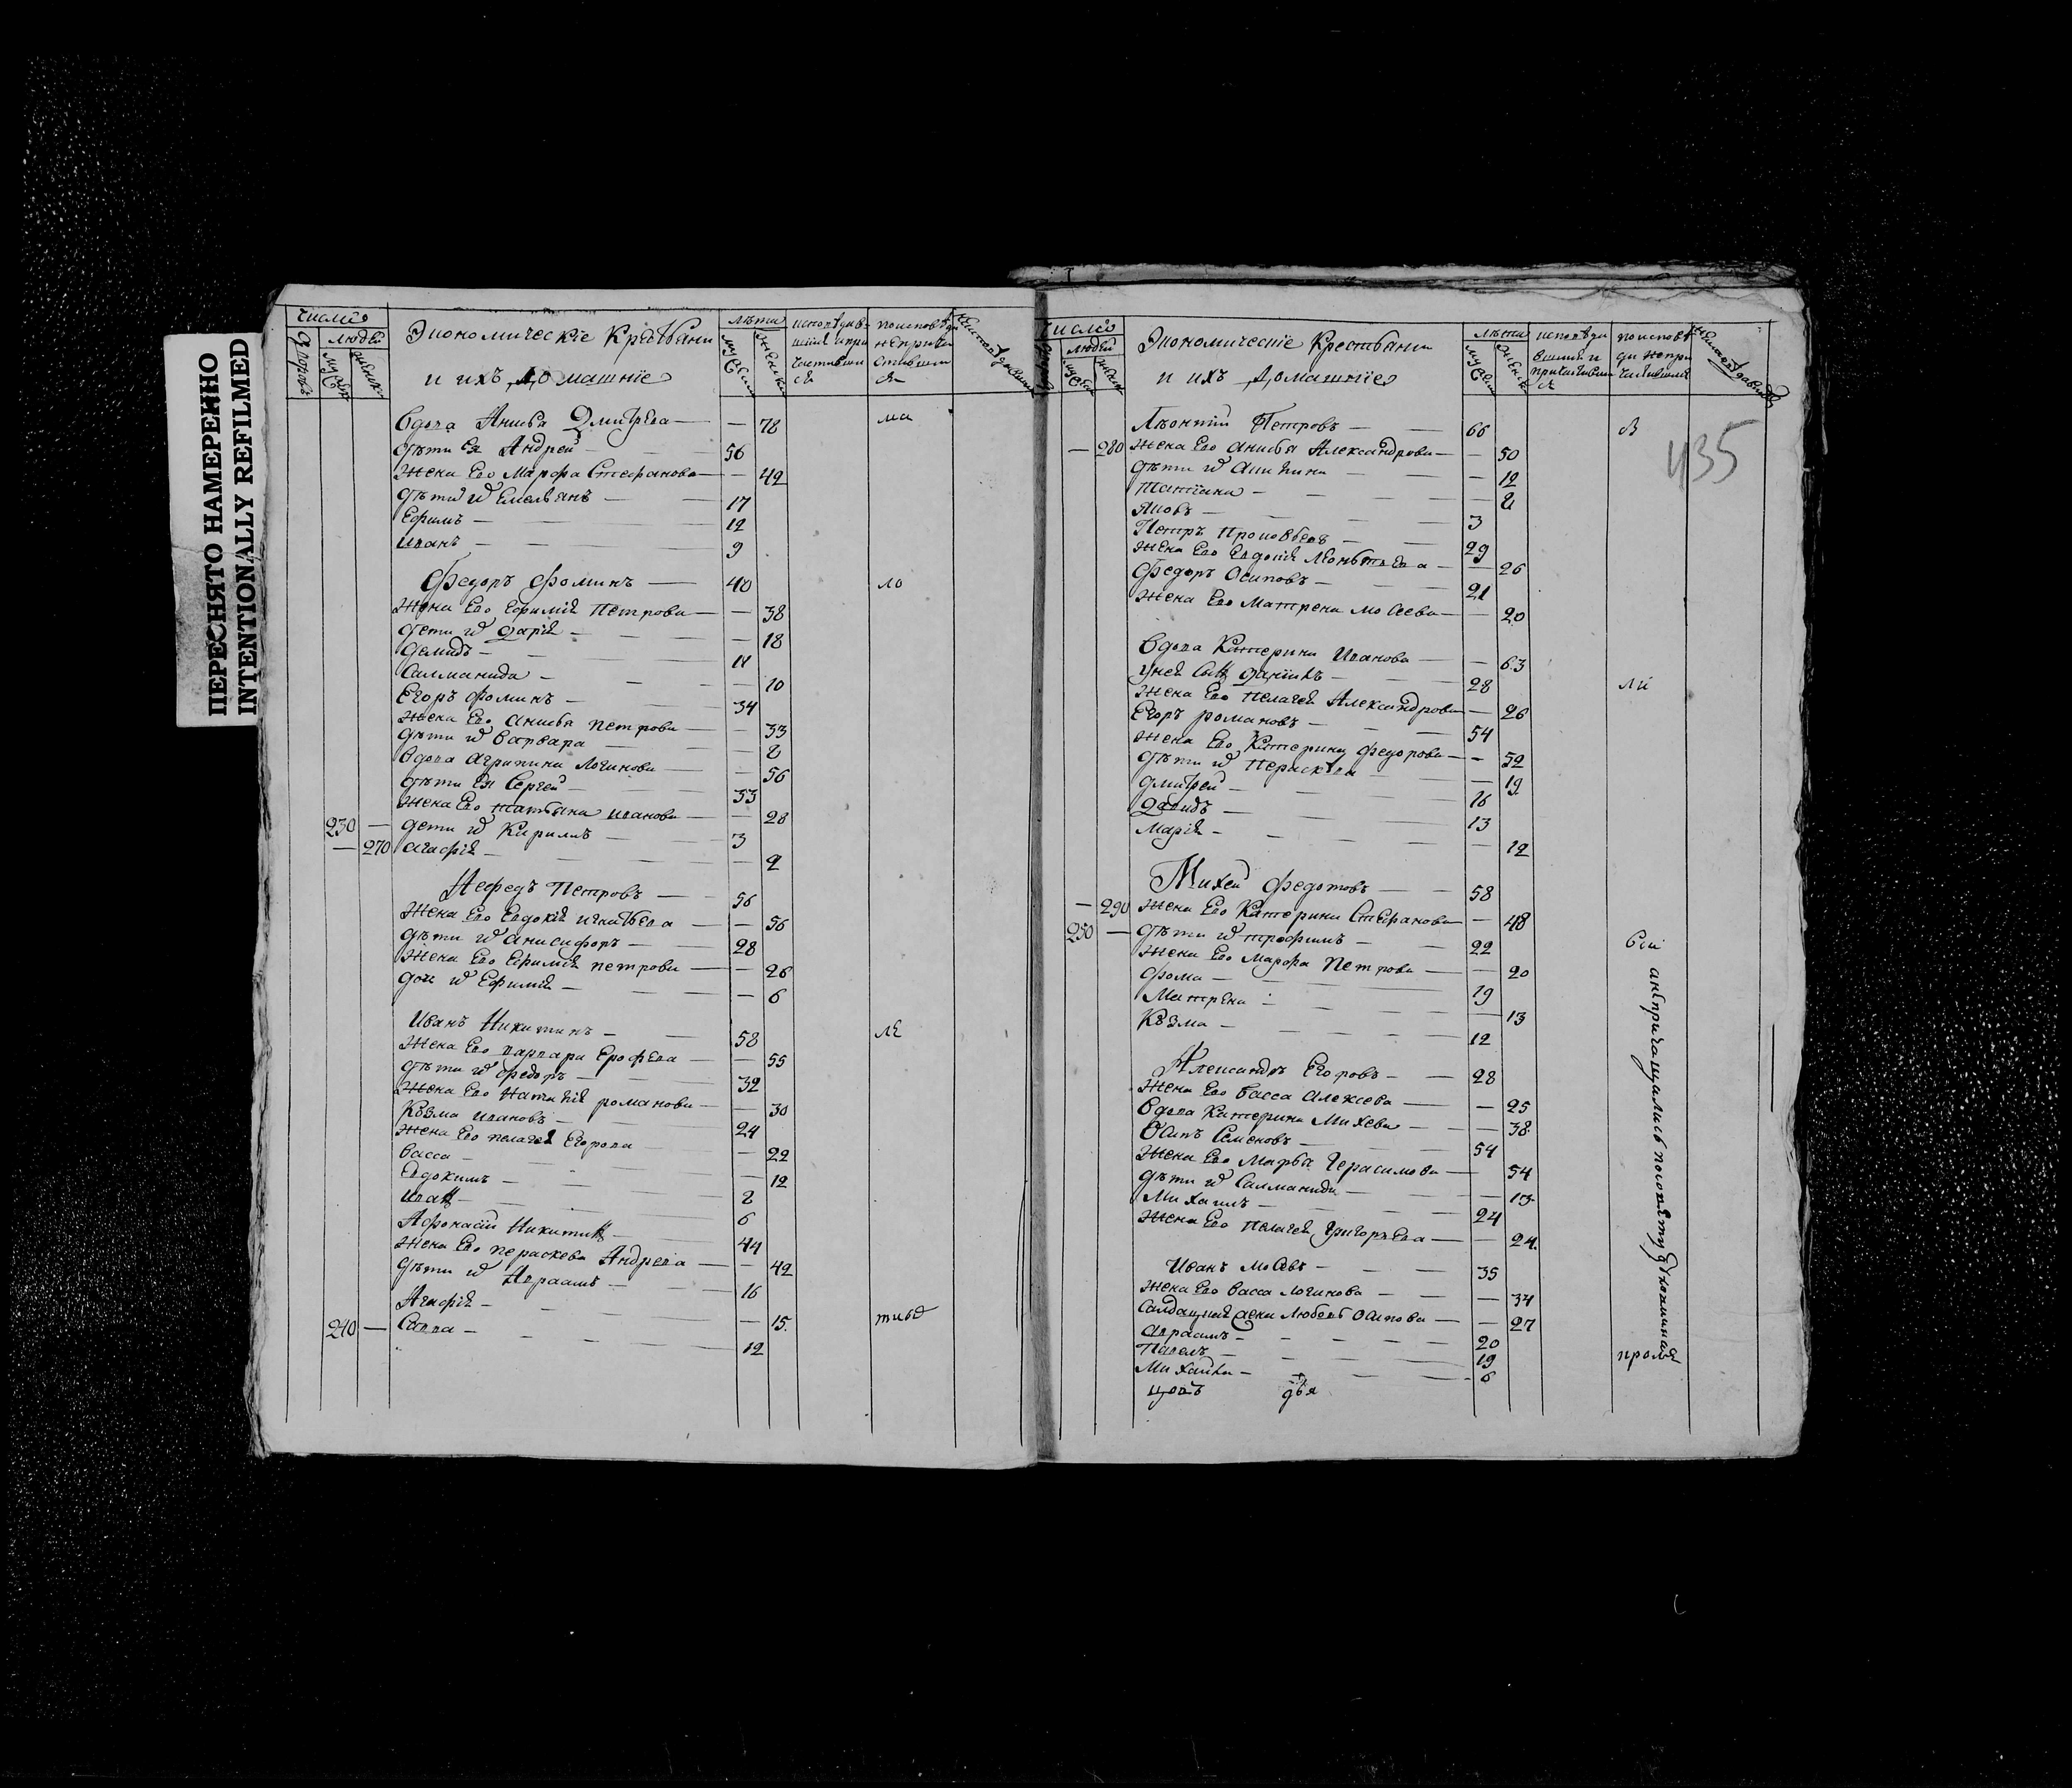 ПЕРЕСНЯТО НАМЕРЕННО
INTENTIONALLY REFILMED
число
дворовъ
людей
мужеска
женска
Экономическїе Крестьяни
и ихъ домашнїе
лѣта
мужеска
женска
Вдова Анисья Дмитрева — 78
дѣти ея Андрей — 56
Жена Ево Марфа Стефанова — 49
дѣти ихъ Емельянъ — 17
Ефимъ — 12
Иванъ — 9
Федоръ Фоминъ — 40
Жена Ево Ефимия Петрова — 38
дети их Дария — 18
Демидъ — 14
Саламанида — 10
Егоръ Фоминъ — 34
Жена Ево Анисья Петрова — 33
дѣти их Варвара — 8
Вдова Агрипина Логинова — 56
дѣти ея Сергей — 33
Жена Ево Татьяна Иванова — 28
230 — дети их Кирилъ — 3
— 270 Агафия — 2
Нефедъ Петровъ — 56
Жена Ево Евдокия Игнатьева — 56
дѣти их Анисифоръ — 28
Жена Ево Ефимия Петрова — 26
дочь их Ефимия — 6
Иванъ Никитинъ — 58
Жена Ево Варвара Ерофеева — 55
дѣти их Федоръ — 32
Жена Ево Наталия Романова — 30
Козма Ивановъ — 24
Жена Ево Пелагея Егорова — 22
Васса — 12
Евдокимъ — 8
Иванъ — 6
Афонасий Никитинъ — 44
Жена Ево Пераскева Андреева — 42
дѣти их Авраамъ — 16
Агафия — 15
240 — Савва — 12
число
людей
Экономическїе Крестьяни
и ихъ домашнїе
лѣта
435
Леонтий Петровъ — 66
— 280 Жена Ево Анисья Александрова — 50
дѣти их Акилина — 12
Татїана — 8
Яковъ — 3
Петръ Прокофьевъ — 29
Жена Ево Евдокия Леонтьева — 26
Федоръ Осиповъ — 21
Жена Ево Матрена Мосеева — 20
Вдова Катерина Иванова — 63
у ней сынъ Данїилъ — 28
Жена Ево Пелагея Александрова — 26
Егоръ Романовъ — 54
Жена Ево Катерина Федорова — 52
дѣти их Пераскева — 19
Дмитрей — 16
Давидъ — 13
Мария — 12
Михей Федотовъ — 58
— 290 Жена Ево Катерина Стефанова — 48
250 — дѣти их Трофимъ — 22
Жена Ево Марфа Петрова — 20
Фома — 19
Матрена — 13
Козма — 12
Александръ Егоровъ — 28
Жена Ево Васса Алексеева — 25
Вдова Катерина Михеева — 38
Осипъ Семеновъ — 54
Жена Ево Марья Герасимова — 54
дѣти их Саламанида — 13
Михаилъ — 24
Жена Ево Пелагея Григорьева — 24
Иванъ Мосеевъ — 35
Жена Ево Васса Логинова — 34
Салдатская жена Любовь Осипова — 27
Авраамъ — 20
Павелъ — 19
Михайла — 6